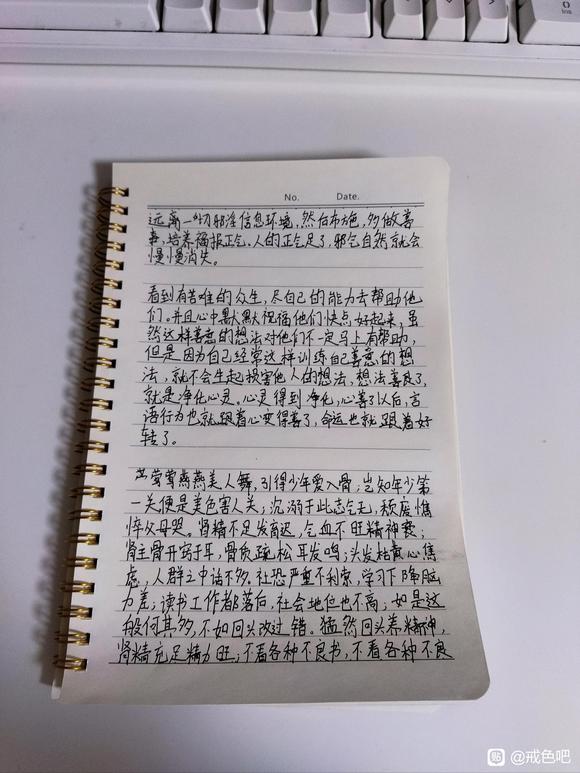 No. Date.
远离一切邪淫信息环境,然后布施,多做善
事,培养福报正气。人的正气足了,邪气自然就会
慢慢消失。
看到有苦难的众生,尽自己的能力去帮助他
们。并且心中默默祝福他们快点好起来,虽
然这样善意的想法对他们不一定马上有帮助,
但是因为自己经常这样训练自己善意的想
法,就不会生起损害他人的想法,想法善良了,
就是净化心灵。心灵得到净化,心善了以后,言
语行为也就跟着心变得善了,命运也就跟着好
转了。
莺莺燕燕美人舞,引得少年爱入骨;岂知年少第
一关便是美色害人关;沉溺于此志气无,颓废憔
悴父母哭。肾精不足发育迟,气血不旺精神萎;
肾主骨开窍于耳,骨质疏松耳发鸣;头发枯黄心焦
虑,人群之中话不多.社恐严重不利索,学习下降脑
力差;读书工作都落后,社会地位也不高;如是这
般何其多,不如回头改过错。猛然回头养精神,
肾精充足精力旺;不看各种不良书,不看各种不良
贴 @戒色吧